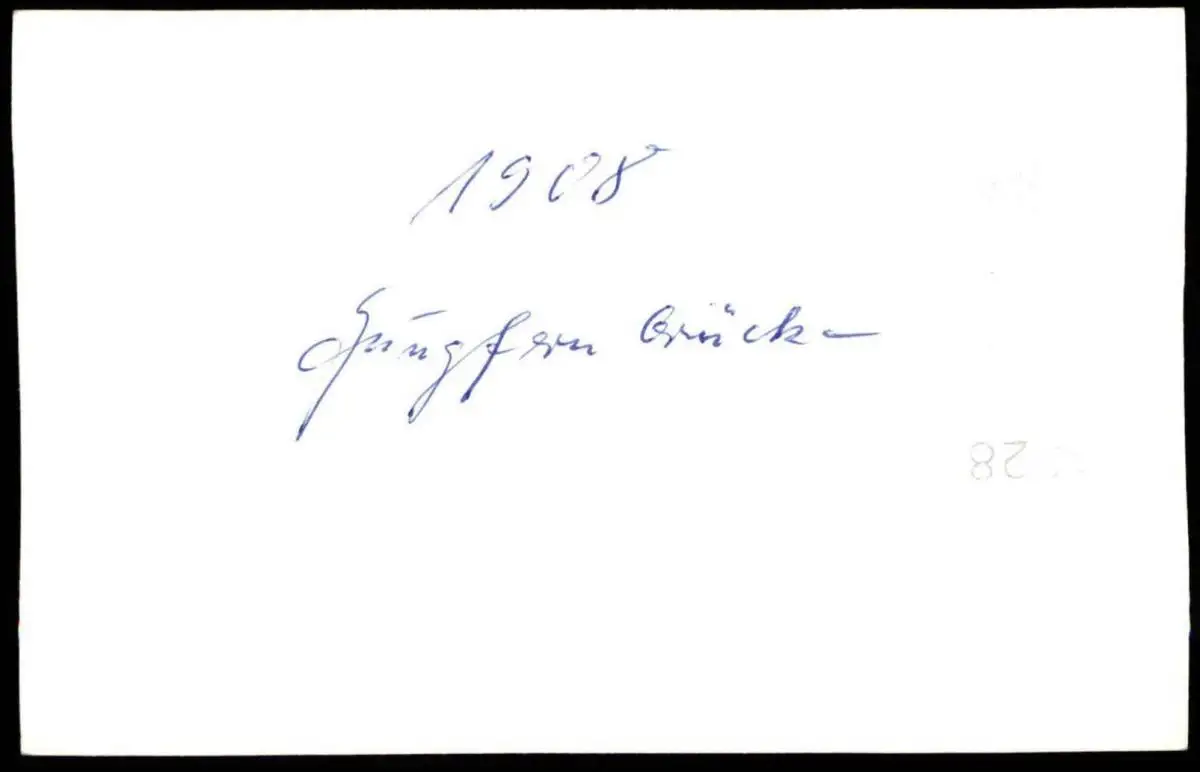 1908
Jungfern brücke
28